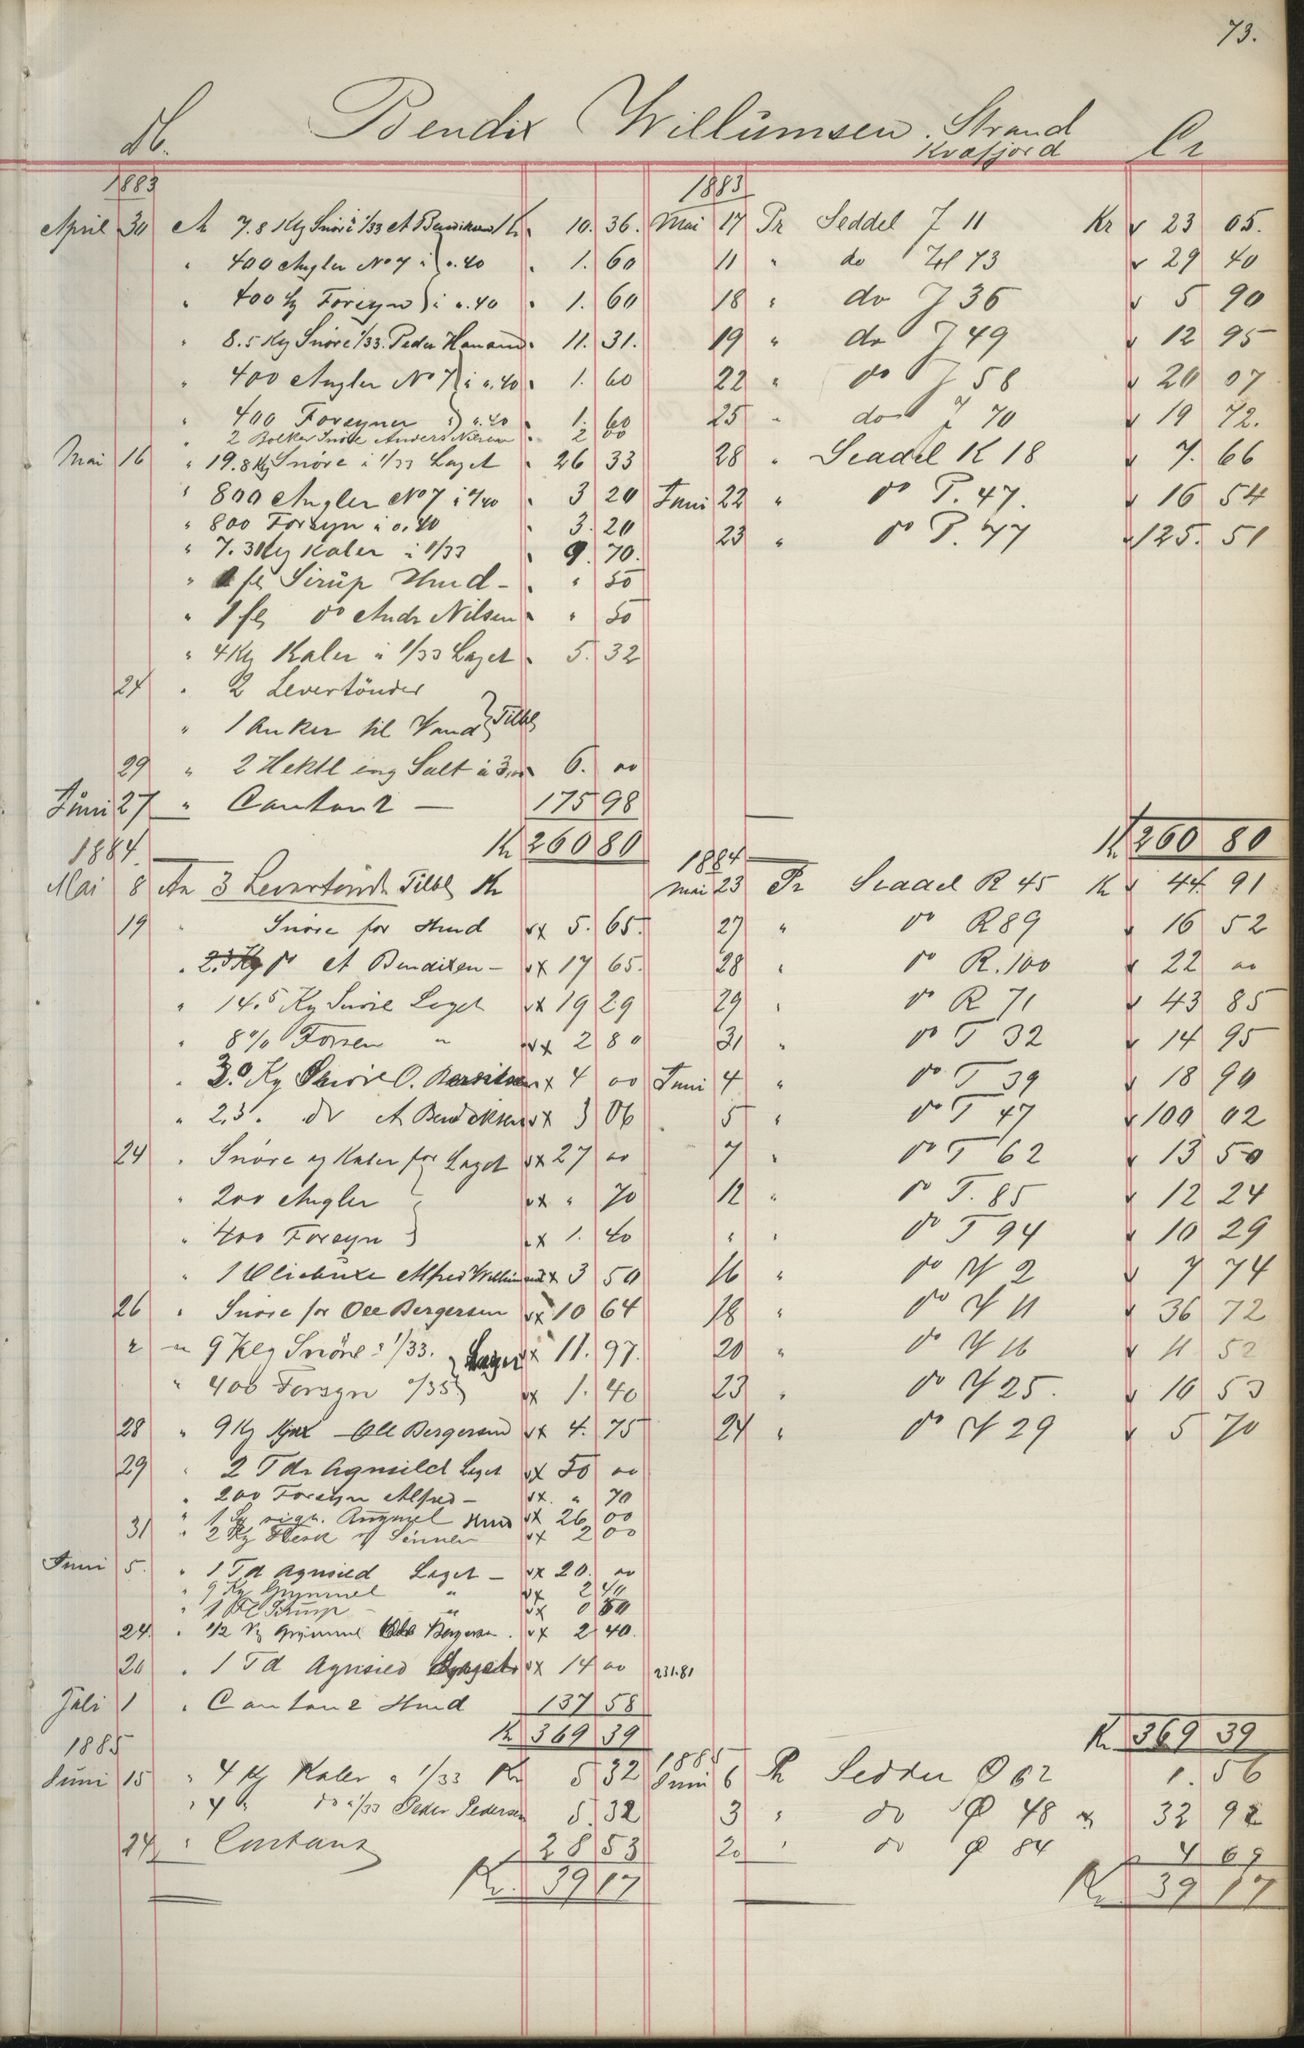 73.
Db. Bendix Willumsen. Strand Cr
Kvæfjord
1883 1883
April 30 A 7.8 Klg Snöre i 1/33 A Bendiksen Kr 10. 36. Mai 17 Pr Seddel J 11 Kr 23 05.
" 400 Angler No 7 à 0.40 " 1. 60 11 " do 73 29 40
" 400 Forsyn à 0.40 " 1. 60 18 " do J 36 5 90
" 8.5 Klg Snöre 1/33. Peder Hansen 11. 31. 19 " do J 49 12 95
" 400 Angler No 7 à 0.40 1. 60 22 " do J 58 20 07
" 400 Forsyner à 0.40 1. 60 25 " do J 70 19 72.
" 2 Bolker Snöre Anders Nilsen 2 00
Mai 16 " 19.8 Kg Snöre à 1/33 Laget 26 33 28 " Seddel K 18 7. 66
" 800 Angler No 7 à 0/40 3 20 Juni 22 " do P. 47. 16 54
" 800 Forsyn à 0.40 3. 20
" 7.3 Kg Kaler à 1/33 9. 70. 23 " do P. 77 125. 51
" 1 fl Sirup Hmd - " 50
" 1 fl do Andr Nilsen " 50
" 4 Kg Kaler à 1/33 Laget 5. 32
24 " 2 Levertönder
" 1 Anker til Vand } Tilbl
29 " 2 Hektl eng Salt à 3,00 6. 00
Juni 27 " Contant — 175 98
Kr 260 80 Kr 260 80
1884. 1884
Mai 8 An 3 Levertönde Tilbl Kr Mai 23 Pr Seddel R 45 Kr 44. 91
19 " Snöre for Hmd vx 5. 65. 27 " do R 89 16 52
" 2.3 Kg do A Bendixen - vx 17 65. 28 " do R. 100 22 00
" 14.5 Kg Snöre Laget vx 19 29 29 " do R 71 43 85
" 8 % Forsen " vx 2 80 31 " do T 32 14 95
" 3.0 Kg Snöre O. vx 4 00 Juni 4 " do T 39 18 90
" 2,3. do A Bendiksen vx 3 06 5 " do T 47 100 02
24 " Snöre og Kaler for Laget vx 27 00 7 " do T 62 13 50
" 200 Angler vx " 70 12 " do T. 85 12 24
" 400 Forsyn vx 1. 40 " " do T 94 10 29
" 1 Oliebuxe Alfred Willumsen vx 3 50 16 " do V 2 7 74
26 " Snöre for Ole Bergersen vx 10 64 18 " do V 11 36 72
" " 9 Klg Snöre à 1/33. } Laget vx 11. 97. 20 " do V 16 11 52
" 400 Forsyn 0/35 vx 1. 40 23 " do V 25. 10 53
28 " 9 Kg - Ole Bergersen vx 4. 75 24 " do V 29 5 70
29 " 2 Tdr Agnsild Laget vx 50 00
" 200 Forsyn Alfred - vx " 70
" 1 Sk sigt. Rugmel Hmd vx 26 00
31 " 2 Kg Flesk v Sönnen vx 2 00
Juni 5. " 1 Td Agnsild Laget - vx 20. 00
" 9 Kg Grynmel " vx 2 40
" 1 Fl Sirup " vx 0 50
24. " 1/2 Vg Grynmel Ole Bergersen. vx 2 40.
20 " 1 Td Agnsild Laget vx 14 00 231.81
Juli 1 " Contant Hmd 137 58
Kr 369 39 Kr 369 39
1885 1885
Juni 15 " 4 Kg Kaler à 1/33 Kr 5 32 Juni 6 Pr Seddel Ø 62 1. 56
" 4 " do à 1/33 Peder Pedersen 5. 32 3 " do Ø 48 32 92
24 " Contant 28 53 20 " do Ø 84 4 69
Kr. 39 17 Kr 39 17